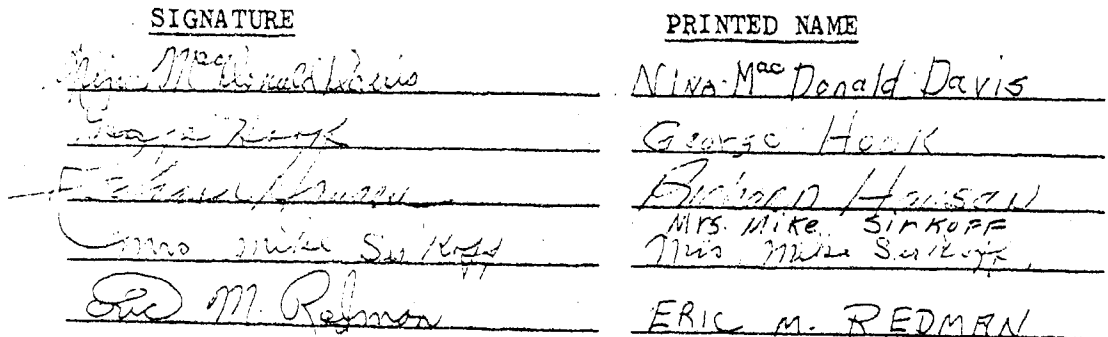 SIGNATURE PRINTED NAME
Nina MacDonald Davis Nina MacDonald Davis
George Hook George Hook
Richard Hansen Richard Hansen
Mrs. Mike Sirkoff
Mrs Mike Sirkoff Mrs Mike Sirkoff
Eric M. Redman ERIC M. REDMAN